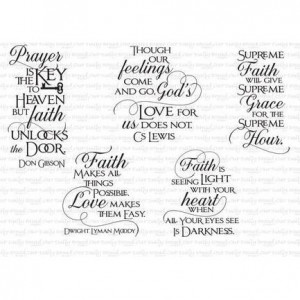 Prayer
is Key
the to
Heaven
but faith
unlocks
the Door.
Don Gibson
Though
our
feelings
come
and go, God's
Love for
us does not.
CS Lewis
Supreme
Faith
will give
Supreme
Grace
for the
Supreme
Hour.
Faith
Makes all
things
Possible,
Love makes
them Easy.
Dwight Lyman Moody
Faith is
seeing Light
with your
heart
when
all your eyes see
is Darkness.